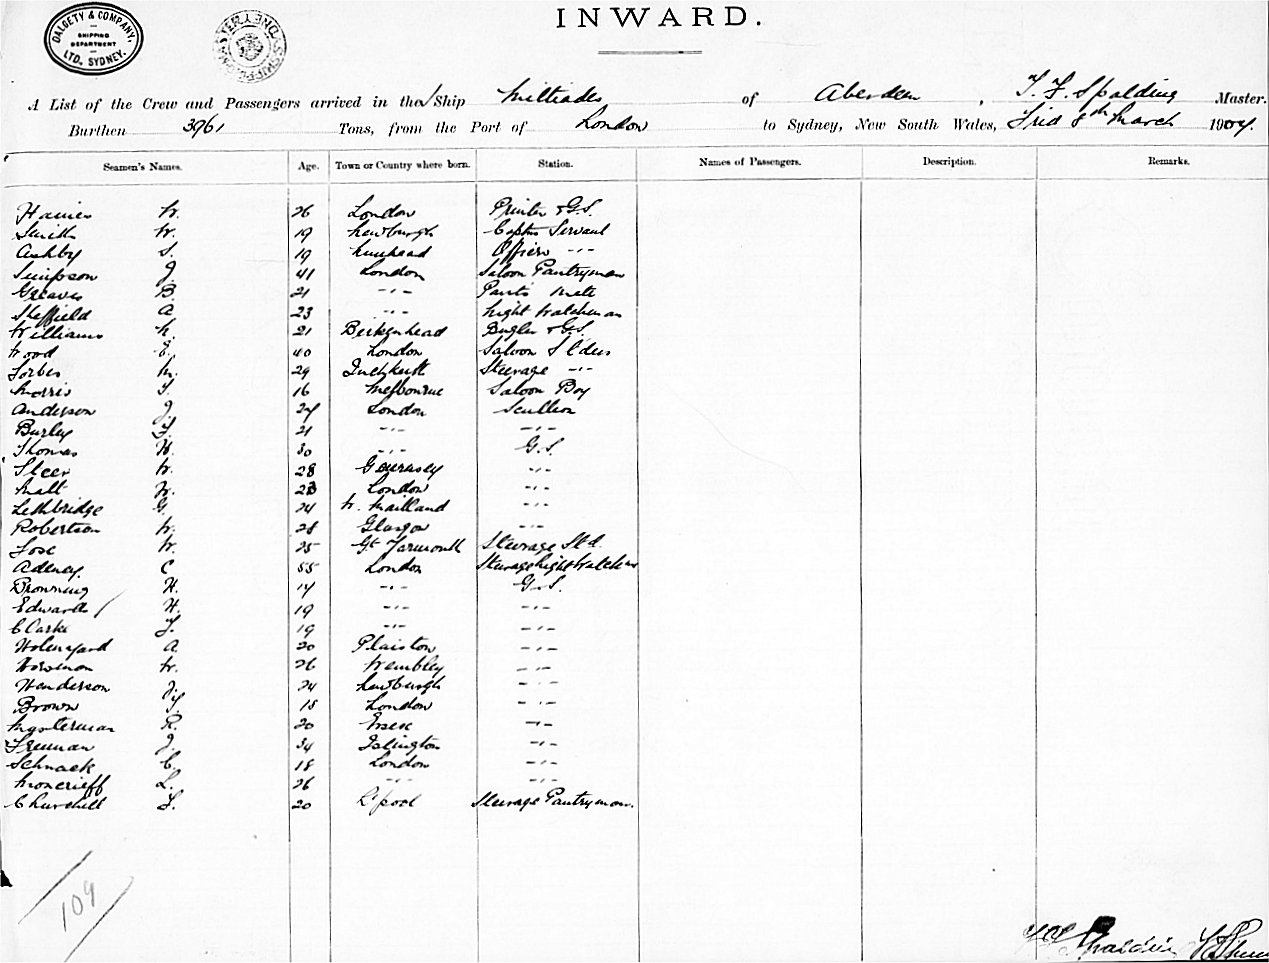 DALGETY & COMPANY, LTD. SYDNEY.
SHIPPING DEPARTMENT
INWARD.
A List of the Crew and Passengers arrived in the Ship Miltiades of Aberdeen, T. F. Spalding Master.
Burthen 3961 Tons, from the Port of London to Sydney, New South Wales, Frid 8th March 1907.
Seamen's Names. Age. Town or Country where born. Station. Names of Passengers. Description. Remarks.
Haines W. 26 London Printer & G.S.
Smith W. 19 Newburgh Capts Servant
Ashby S. 19 Nunhead Officers -"-
Simpson J. 41 London Saloon Pantryman
Greaves B. 21 -"- Pants Mate
Sheffield A 23 -"- Night Watchman
Williams 21 Birkenhead Bugler & G.S.
Wood E. 40 London Saloon
Forbes 29 Steerage -"-
Morris T. 16 Melbourne Saloon Boy
Anderson J. 24 London Scullion
Burley F. 21 -"- -"-
Thomas H. 30 -"- G.S.
Steer W. 28 Guernsey -"-
W. 23 London -"-
Lethbridge G. 24 W. Maitland -"-
Robertson W. 28 Glasgow -"-
W. 25 Gt Yarmouth Steerage Std.
Adeney C 55 London Steerage Night Watchman
Browning H. 17 -"- G.S.
Edwards H. 19 -"- -"-
Clarke 19 -"- -"-
A 20 Plaistow -"-
W. 26 Wembley -"-
Henderson J. 24 Newburgh -"-
Brown 18 London -"-
Masterman R. 20 Essex -"-
Freeman J. 34 Islington -"-
Schnack C. 18 London -"-
Moncrieff L. 26 -"- -"-
Churchill 20 L'pool Steerage Pantryman.
109